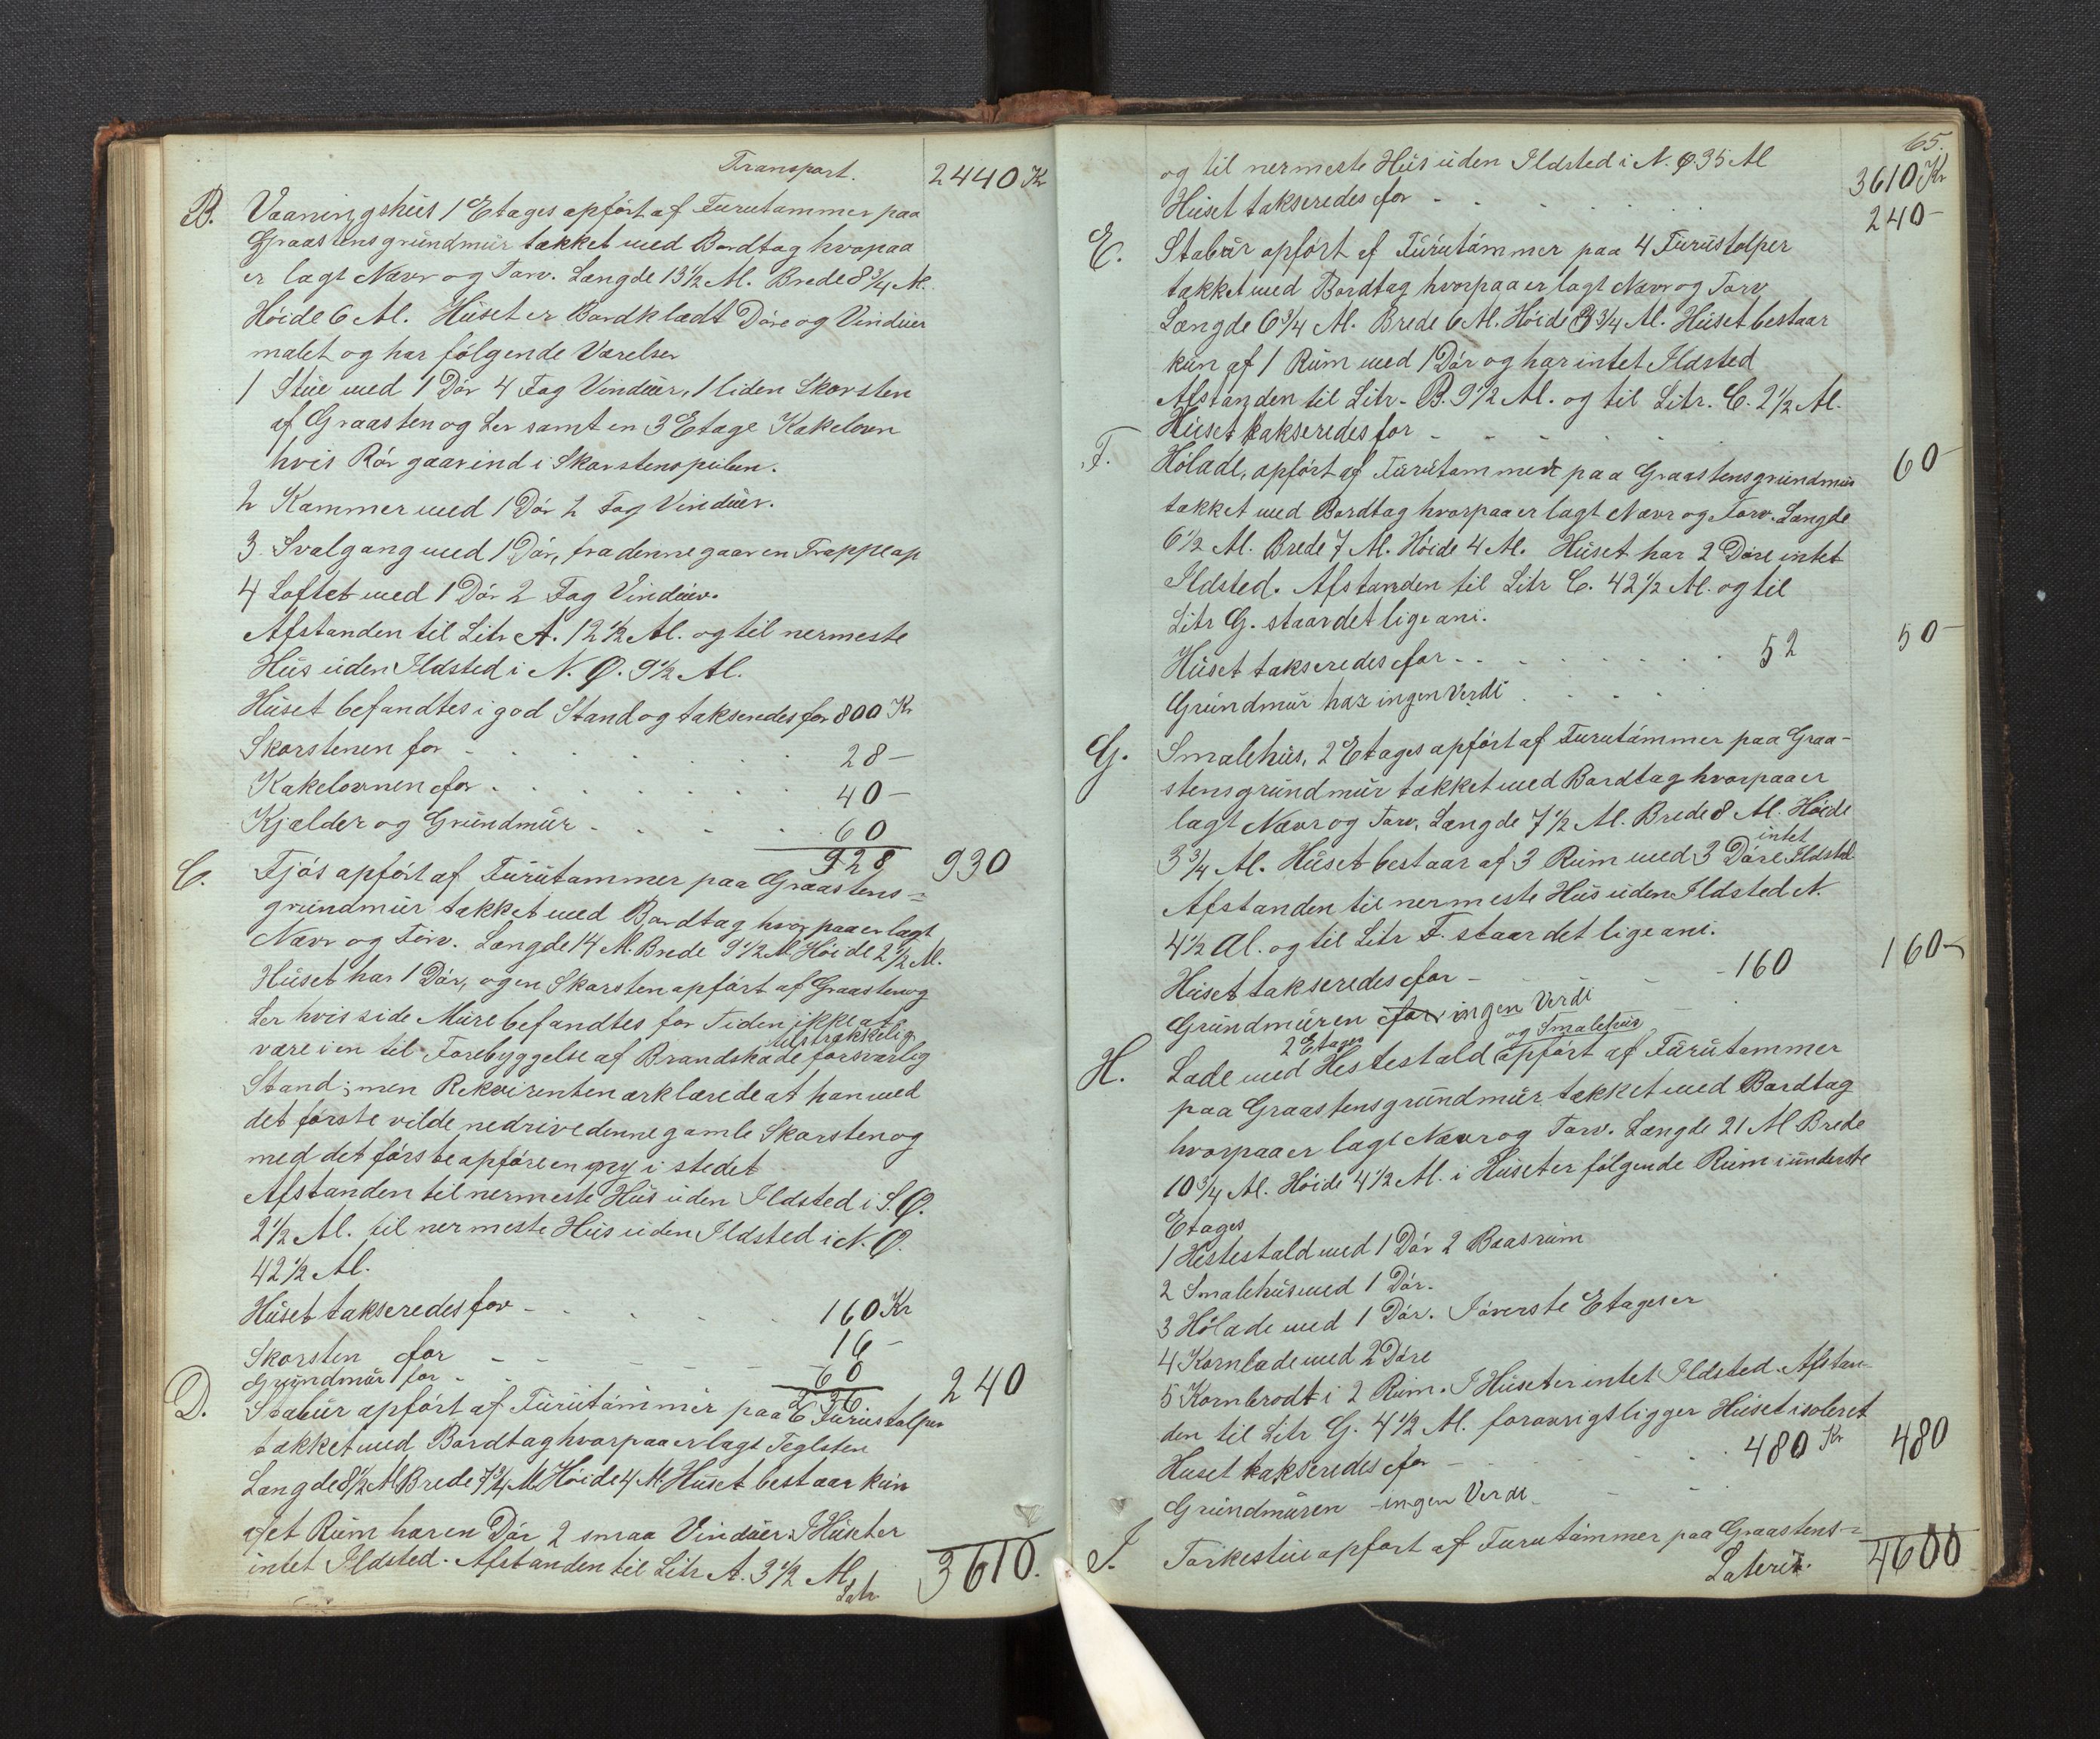 Transport. 2440 Kr
B. Vaaningshús 1 Etages opført af Furutømmer paa
Graastensgrúndmúr tækket med Bordtag hvorpaa
er lagt Nævr og Torv. Længde 13 1/2 Al. Brede 8 3/4 Al.
Høide 6 Al. Húset er Bordklædt Døre og Vindúer
malet og har følgende Værelser
1 Stúe med 1 Dør 4 Fag Vindúer, 1 liden Skorsten
af Graasten og Ler samt en 3 Etage Kakelovn
hvis Rør gaar ind i Skorstenspiben.
2 Kammer med 1 Dør 2 Fag Vindúer.
3. Svalgang med 1 Dør, fra denne gaar en Trappe op
4 Loftet med 1 Dør 2 Fag Vindúer.
Afstanden til Litr A. 12 1/2 Al. og til nermeste
Hús úden Ildsted i N. Ø. 9 1/2 Al.
Húset befandtes i god Stand og takseredes for 800 Kr
Skorstenen for 28 -
Kakelovnen for 40 -
Kjælder og Grúndmúr 60
928 930
C. Fjøs opført af Fúrútømmer paa Graastens=
grúndmúr tækket med Bordtag hvorpaa er lagt
Nævr og Torv. Længde 14 Al. Brede 9 1/2 Al Høide 2 1/2 Al.
Húset har 1 Dør, og en Skorsten opført af Graasten og
Ler hvis side Múre befandtes for Tiden ikke at
være i en til Forebyggelse af Brandskade tilstrækkelig forsvarlig
Stand; men Rekvirenten erklærede at han med
det første vilde nedrive denne gamle Skorsten og
med det første opføre en ny i stedet
Afstanden til nermeste Hús úden Ildsted i S. Ø.
2 1/2 Al. til nermeste Hús úden Ildsted i N. Ø.
42 1/2 Al.
Húset takseredes for 160 Kr
Skorsten for 16 -
Grúndmúr for 60
236 240
D. Stabúr opført af Fúrútømmer paa 6 Fúrústolper
tækket med Bordtag hvorpaa er lagt Teglsten
Længde 8 1/2 Al Brede 7 3/4 Al Høide 4 Al. Húset bestaar kún
af et Rúm har en Dør 2 smaa Vindúer. I Húset er
intet Ildsted. Afstanden til Litr A. 3 1/2 Al.
Latr 3610.
65.
og til nermeste Hús úden Ildsted i N. Ø 35 Al 3610 Kr
Húset takseredes for 240 -
E. Stabúr opført af Fúrútømmer paa 4 Fúrústolper
tækket med Bordtag hvorpaa er lagt Nævr og Torv
Længde 6 3/4 Al. Brede 6 Al. Høide 3 3/4 Al. Húset bestaar
kún af 1 Rúm med 1 Dør og har intet Ildsted
Afstanden til Litr. B. 9 1/2 Al. og til Litr. C. 2 1/2 Al.
Húset takseredes for 60 -
F. Hølade, opført af Fúrútømmer paa Graastensgrúndmúr
tækket med Bordtag hvorpaa er lagt Nævr og Torv. Længde
6 1/2 Al. Brede 7 Al. Høide 4 Al. Húset har 2 Døre intet
Ildsted. Afstanden til Litr C. 42 1/2 Al. og til
Litr G. staar det lige ani.
Húset takseredes for 52 50 -
Grúndmúr har ingen Verdi
G. Smalehús, 2 Etages opført af Furutømmer paa Graa-
stensgrúndmúr tækket med Bordtag hvorpaa er
lagt Nævr og Torv, Længde 7 1/2 Al. Brede 8 Al. Høide
3 3/4 Al. Húset bestaar af 3 Rúm med 3 Døre intet Ildsted
Afstanden til nermeste Hús úden Ildsted N.
4 1/2 Al. og til Litr F. staar det lige ani.
Húset takseredes for 160 160 -
Grúndmúren for ingen Verdi
H. 2 Etages Lade med Hestestald og Smalehús opført af Fúrútømmer
paa Graastensgrúndmúr tækket med Bordtag
hvorpaa er lagt Nævr og Torv. Længde 21 Al Brede
10 3/4 Al. Høide 4 1/2 Al. i Húset er følgende Rúm i únderste
Etages
1 Hestestald med 1 Dør 2 Baasrúm
2 Smalehús med 1 Dør.
3 Hølade med 1 Dør. I øverste Etages er
4 Kornlade med 2 Døre
5 Kornbrodt i 2 Rúm. I Húset er intet Ildsted. Afstan-
den til Litr G. 4 1/2 Al. forøvrigt ligger Húset isoleret
Huset takseredes for 480 Kr 480
Grúndmúren - ingen Verdi
I. Tørkestúe opført af Furutømmer paa Graastens=
Lateris. 4600